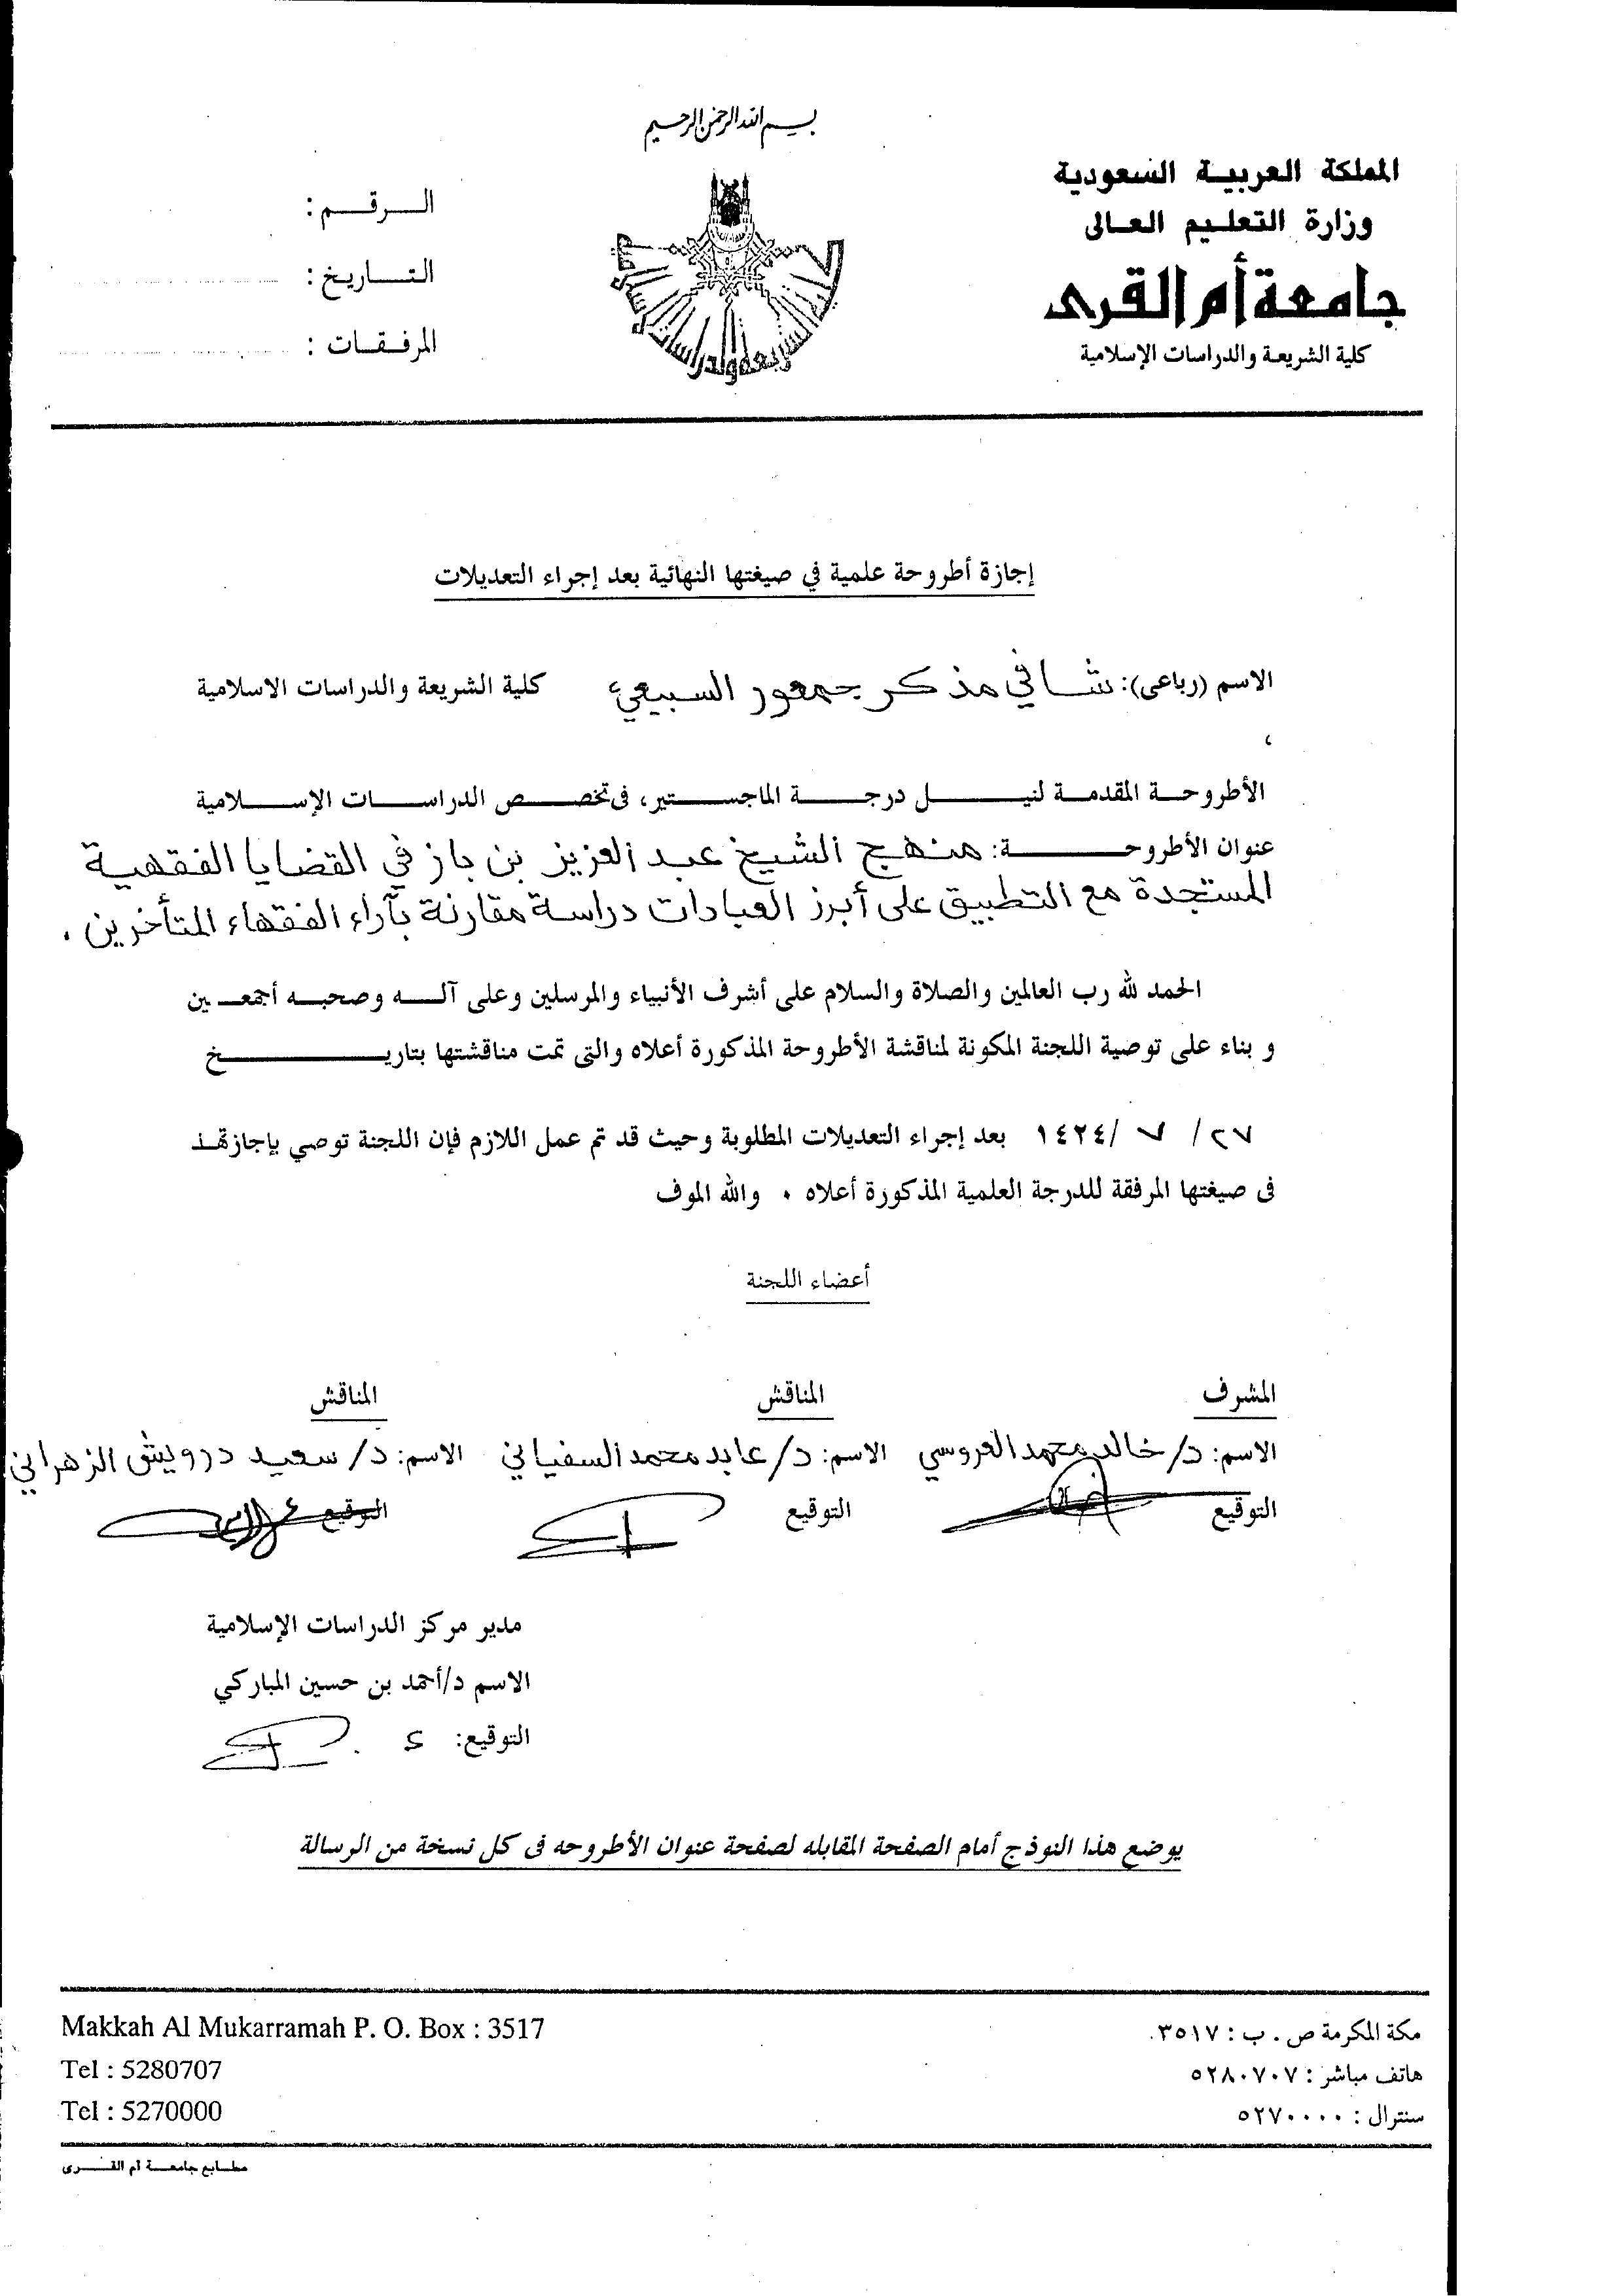 بسم الله الرحمن الرحيم
المملكة العربية السعودية
وزارة التعليم العالى
جامعة أم القرى
كلية الشريعة والدراسات الإسلامية
الرقم :
التاريخ :
المرفقات :
إجازة أطروحة علمية في صيغتها النهائية بعد إجراء التعديلات
الاسم (رباعى): شافي مذكر جمهور السبيعي كلية الشريعة والدراسات الاسلامية
،
الأطروحة المقدمة لنيل درجة الماجستير، فى تخصص الدراسات الإسلامية
عنوان الأطروحة: منهج الشيخ عبد العزيز بن باز في القضايا الفقهية
المستجدة مع التطبيق على أبرز العبادات دراسة مقارنة بآراء الفقهاء المتأخرين .
الحمد لله رب العالمين والصلاة والسلام على أشرف الأنبياء والمرسلين وعلى آله وصحبه أجمعين
و بناء على توصية اللجنة المكونة لمناقشة الأطروحة المذكورة أعلاه والتى تمت مناقشتها بتاريخ
٢٧ / ٧ /١٤٢٤ بعد إجراء التعديلات المطلوبة وحيث قد تم عمل اللازم فإن اللجنة توصي بإجازتها
فى صيغتها المرفقة للدرجة العلمية المذكورة أعلاه . والله الموف
أعضاء اللجنة
المشرف المناقش المناقش
الاسم: د/ خالد محمد العروسي الاسم: د/ عابد محمد السفياني الاسم: د/ سعيد درويش الزهراني
التوقيع التوقيع التوقيع
مدير مركز الدراسات الإسلامية
الاسم د/أحمد بن حسين المباركي
التوقيع:
يوضع هذا النوذج أمام الصفحة المقابله لصفحة عنوان الأطروحه فى كل نسخة من الرسالة
مكة المكرمة ص . ب : ٣٥١٧
هاتف مباشر : ٥٢٨٠٧٠٧
سنترال : ٥٢٧٠٠٠٠
Makkah Al Mukarramah P. O. Box : 3517
Tel : 5280707
Tel : 5270000
مطابع جامعة أم القرى